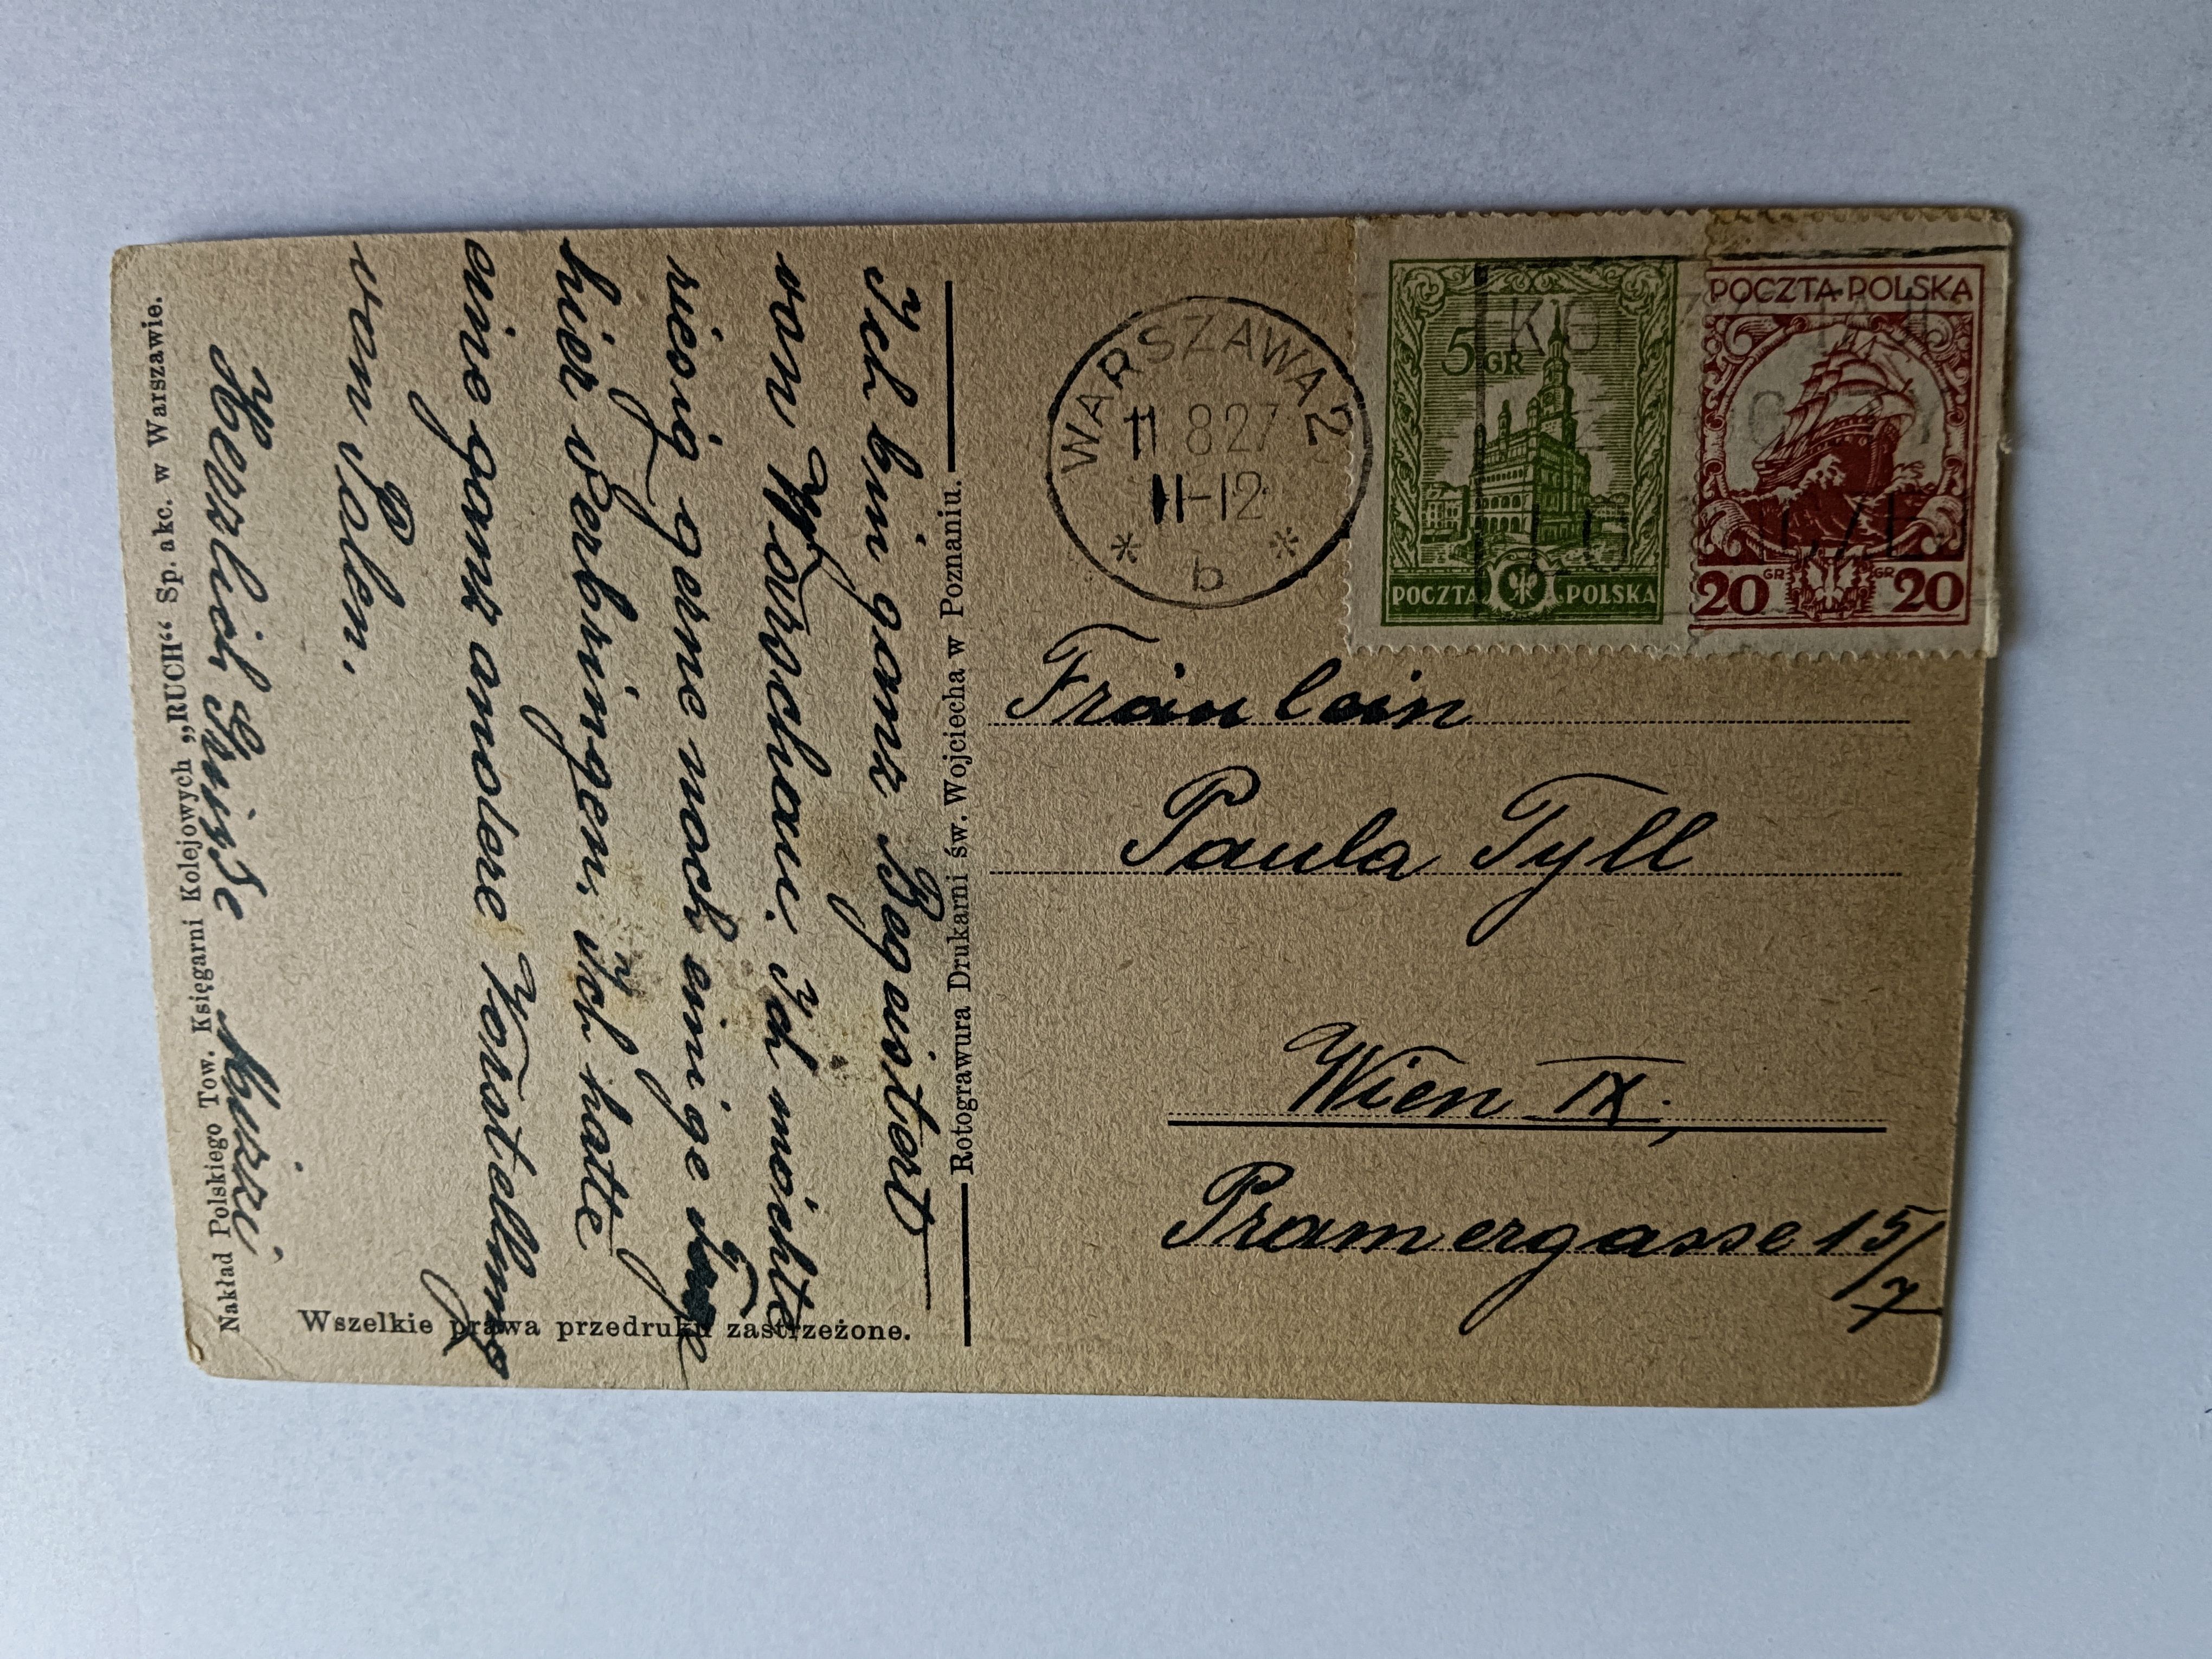 Ich bin ganz Begeistert
von Warschau. Ich möchte
riesig gerne noch einige Tage
hier verbringen. Ich hatte
eine ganz andere Vorstellung
von Polen.
Herzlich Grüße
Nakład Polskiego Tow. Księgarni Kolejowych „RUCH“ Sp. akc. w Warszawie.
Wszelkie prawa przedruku zastrzeżone.
Rotograwura Drukarni św. Wojciecha w Poznaniu.
WARSZAWA 2
11 8 27
11-12
* b *
5 GR
POCZTA POLSKA
POCZTA POLSKA
20 GR GR 20
Fräulein
Paula Tyll
Wien IX.,
Pramergasse 15/
7